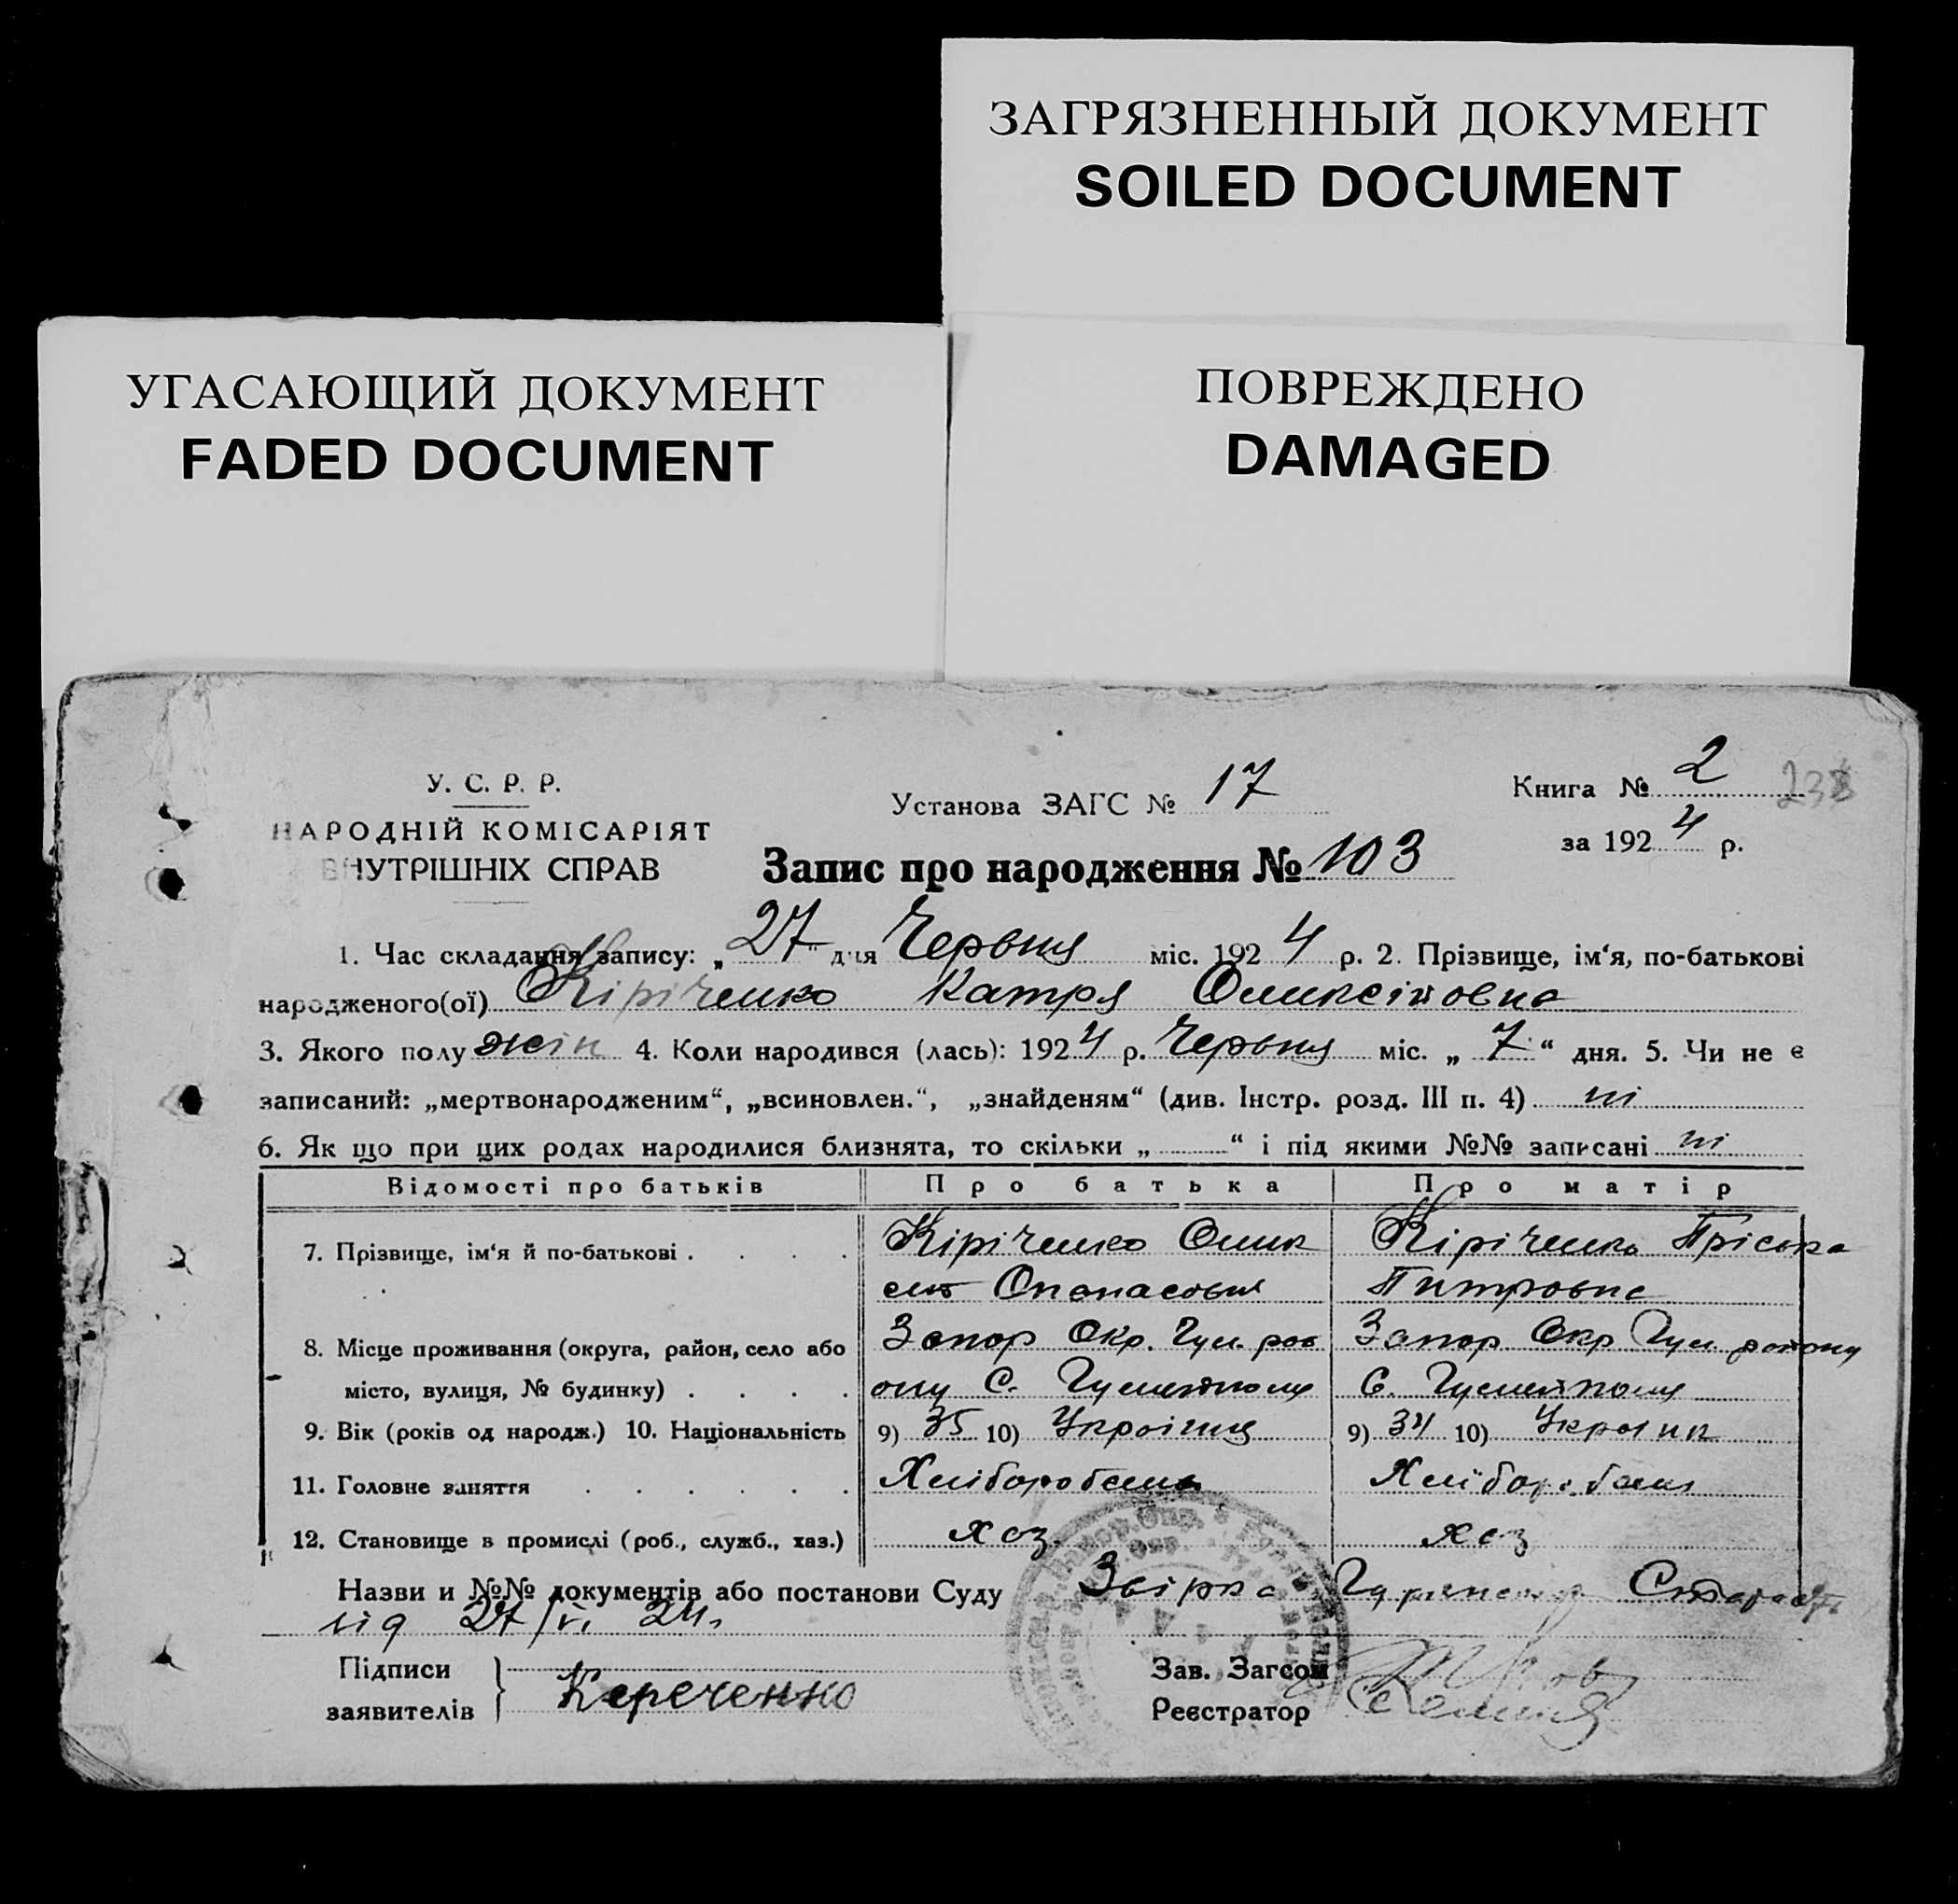 ЗАГРЯЗНЕННЫЙ ДОКУМЕНТ
SOILED DOCUMENT
УГАСАЮЩИЙ ДОКУМЕНТ
FADED DOCUMENT
ПОВРЕЖДЕНО
DAMAGED
У. С. Р. Р.
НАРОДНІЙ КОМІСАРІЯТ
ВНУТРІШНІХ СПРАВ
Установа ЗАГС № 17
Запис про народження № 103
Книга № 2 238
за 1924 р.
1. Час складання запису: „27“ дня Червня міс. 1924 р. 2. Прізвище, ім‘я, по-батькові
народженого(ої) Кіріченко Катря Оликсійовна
3. Якого полу жін 4. Коли народився (лась): 1924 р. Червня міс. „7“ дня. 5. Чи не є
записаний: „мертвонародженим“, „всиновлен.“, „знайденям“ (див. Інстр. розд. III п. 4) ні
6. Як що при цих родах народилися близнята, то скільки „ “ і під якими №№ записані ні
Відомості про батьків Про батька Про матір
7. Прізвище, ім‘я й по-батькові . . . . Кіріченко Олик Кіріченко Пріська
Опанасович Питровна
8. Місце проживання (округа, район, село або Запор Окр. Гул. рай Запор Окр Гул. району
місто, вулиця, № будинку) . . . . ону С. Гуляйполя С. Гуляйполя
9. Вік (років од народж.) 10. Національність 9) 35 10) Украінец 9) 34 10) Украінк
11. Головне заняття . . . . . . Хліборобська Хлібороб
12. Становище в промислі (роб., служб., хаз.) хоз. хоз
Назви и №№ документів або постанови Суду Звірка
від 27/VI 24.
Підписи
заявителів Кереченко
Зав. Загсом
Реєстратор